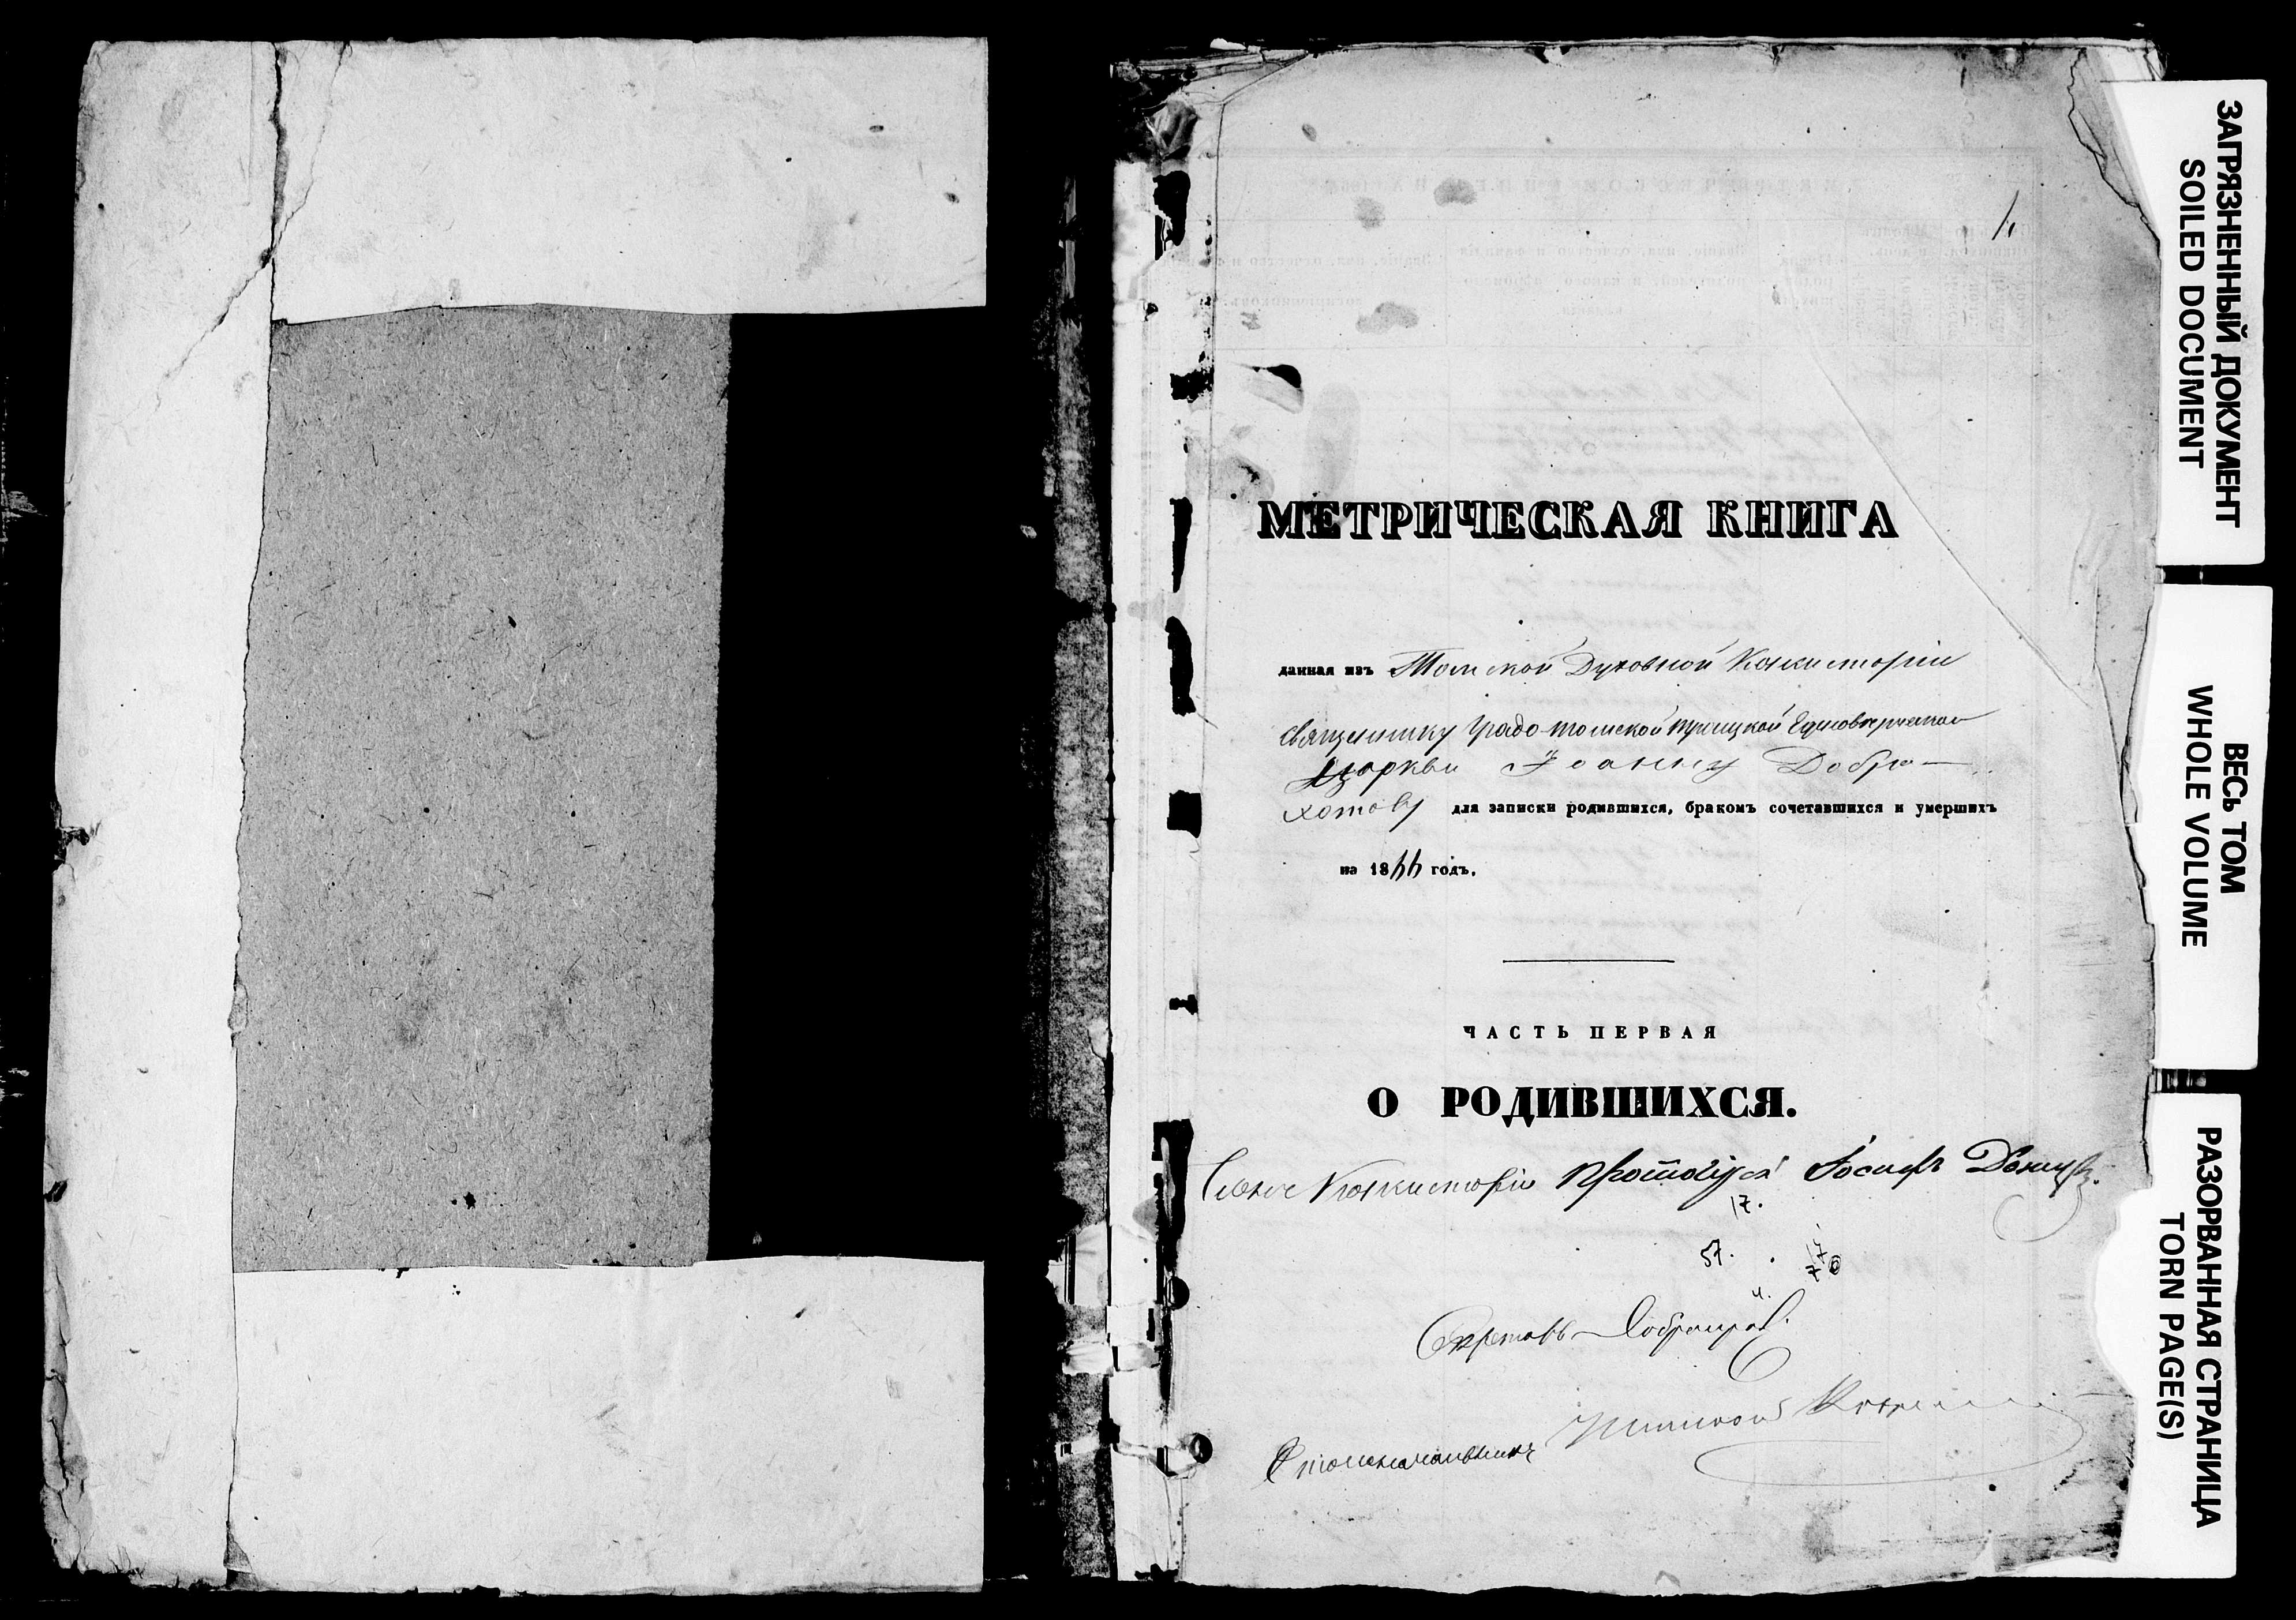 1.
МЕТРИЧЕСКАЯ КНИГА
данная изъ Томской Духовной Консисторіи
священнику Градо-Томской Троицкой Единоверческой
Церкви Іоанну Добро-
хотову для записки родившихся, бракомъ сочетавшихся и умершихъ
на 18 годъ.
ЧАСТЬ ПЕРВАЯ
О РОДИВШИХСЯ.
Членъ Консисторіи Протоіерей Іосифъ
17.
57. 17
70
Секретарь
Столоначальникъ
ЗАГРЯЗНЕННЫЙ ДОКУМЕНТ
SOILED DOCUMENT
ВЕСЬ ТОМ
WHOLE VOLUME
РАЗОРВАННАЯ СТРАНИЦА
TORN PAGE(S)